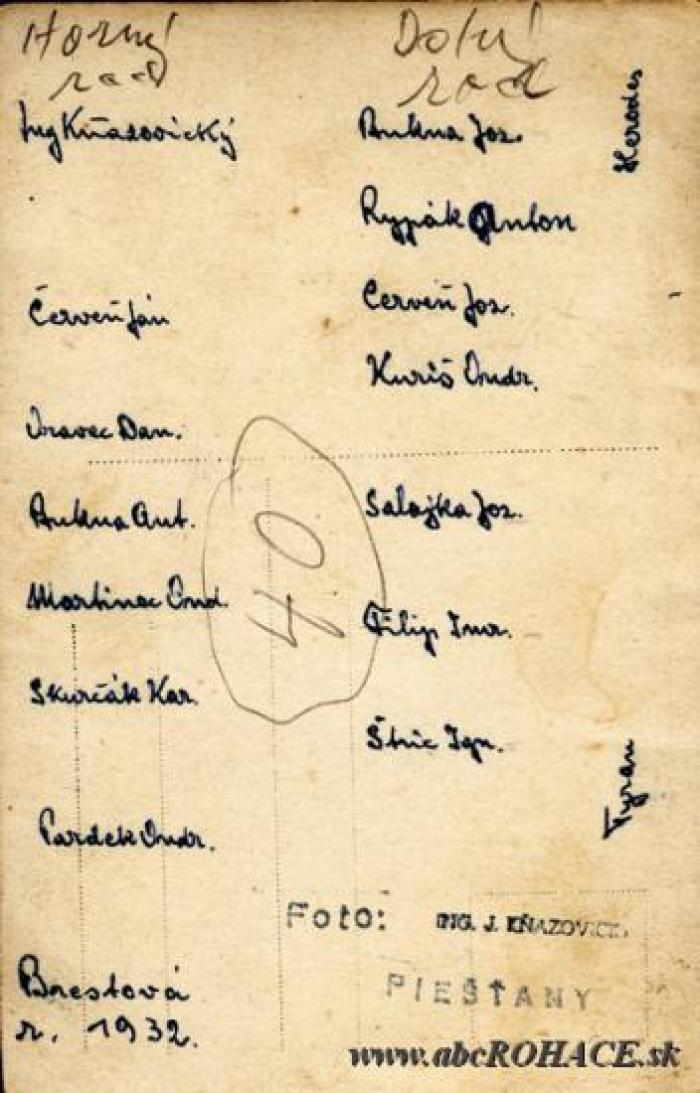 Horný
rad
Ing Kňazovický
Červeň Ján
Oravec Dan.
Bukna Ant.
Martinec Ond.
Skurčák Kar.
Pardek Ondr.
Brestová
r. 1932.
Dolný
rad
Bukna Joz.
Rypák Anton
Červeň Joz.
Kuriš Ondr.
Salajka Joz.
Filip Imr.
Štric Ign.
Herodes
Tyran
40
Foto: ING. J. KŇAZOVICK.
PIEŠŤANY
www.abcROHACE.sk